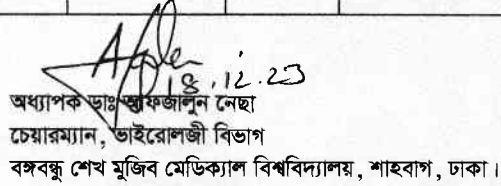 18.12.23
অধ্যাপক ডাঃ আফজালুন নেছা
চেয়ারম্যান, ভাইরোলজী বিভাগ
বঙ্গবন্ধু শেখ মুজিব মেডিক্যাল বিশ্ববিদ্যালয়, শাহবাগ, ঢাকা।